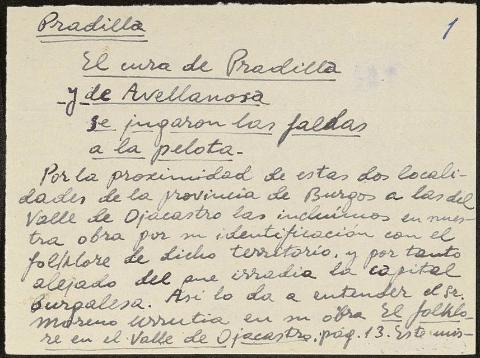 Pradilla
1
El cura de Pradilla
y de Avellanosa
se jugaron las faldas
a la pelota.
Por la proximidad de estas dos locali-
dades de la provincia de Burgos a las del
Valle de Ojacastro las incluimos en nues-
tra obra por su identificación con el
folklore de dicho territorio, y por tanto
alejado del que irradia la capital
burgalesa. Asi lo da a entender el Sr.
Moreno Urrutia en su obra El folklo-
re en el Valle de Ojacastro, pág. 13. Este mis-